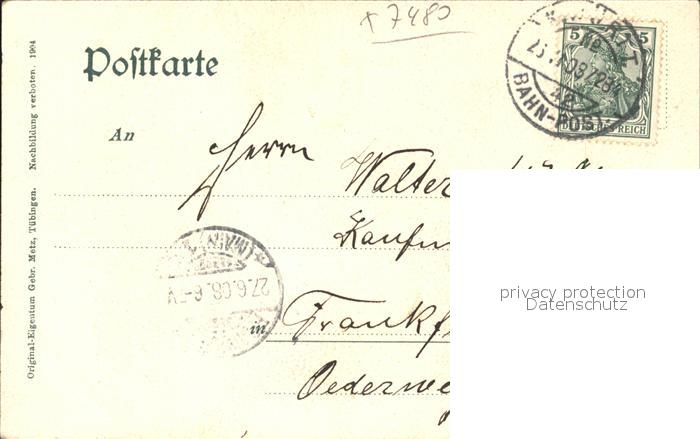 x 7480
Postkarte
5 5
BAHN-POST
REICH
An
Herrn
Walter
Kaufm
27.6.08.6-7V
in Frankf
Oederwe
Nachbildung verboten. 1904
Original-Eigentum Gebr. Metz, Tübingen.
privacy protection
Datenschutz